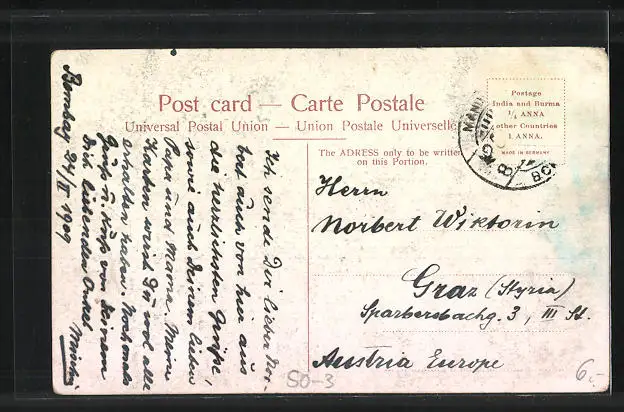 Post card — Carte Postale
Universal Postal Union — Union Postale Universelle
The ADRESS only to be written
on this Portion.
Postage
India and Burma
1/4 ANNA
other Countries
1 ANNA.
MADE IN GERMANY
MAND
8
BO
Herrn
Norbert Wiktorin
Graz (Styria)
Sparbersbachg. 3, III St.
Austria Europe
Ich sende Dir lieber Nor-
bert auch von hier aus
die herzlichsten Grüße,
sowie auch Deinem lieben
Papa und Mama. Meine
Karten wirst Du wol alle
erhalten haben. Nochmals
Gruß u. Kuß von Deinem
Dich liebenden Onkel
Bombay 24/II 1909
SO-3
6,-